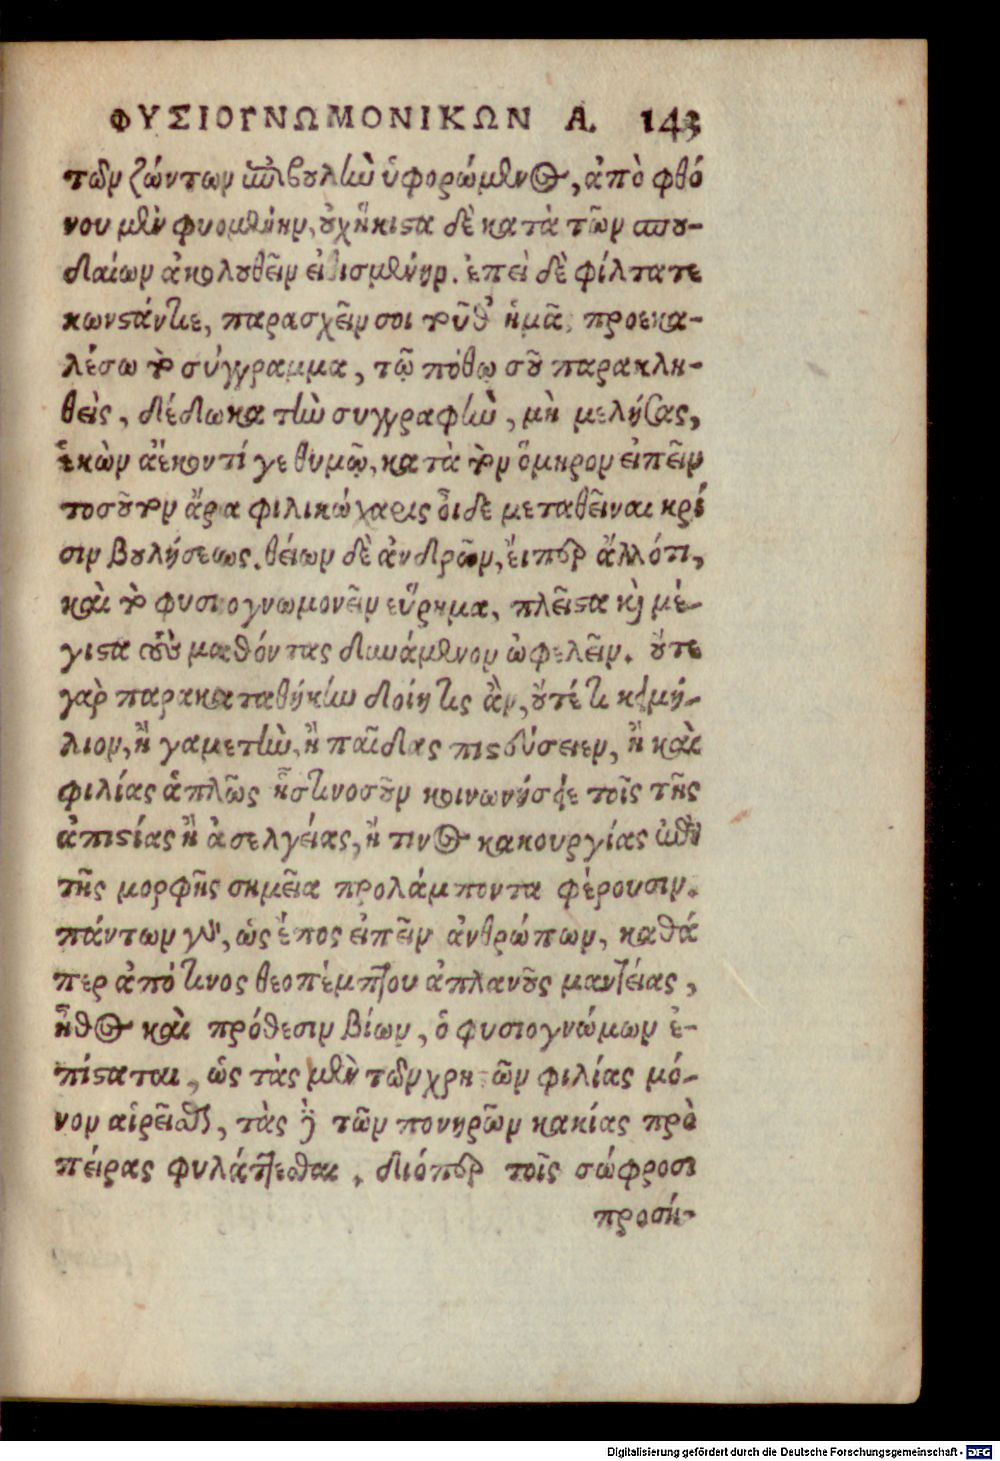 ΦΥΣΙΟΓΝΩΜΟΝΙΚΩΝ Α. 143
τῶν ζώντων ἐπιβουλὴν ὑφορώμενος, ἀπὸ φθό
νου μὲν φυομένην, οὐχἥκιστα δὲ κατὰ τῶν σπου-
δαίων ἀκολουθεῖν εἰθισμένην. ἐπεὶ δὲ φίλτατε
κωνστάντιε, παρασχεῖν σοι τοῦθ' ἡμᾶς προεκα-
λέσω τὸ σύγγραμμα, τῷ πόθῳ σοῦ παρακλη-
θεὶς, δέδωκα τὴν συγγραφὴν, μὴ μελήσας,
ἑκὼν ἀέκοντί γε θυμῷ, κατὰ τὸν ὅμηρον εἰπεῖν
τοσοῦτον ἄρα φιλικὼ χάρις οἶδε μεταθεῖναι κρί
σιν βουλήσεως. θείων δὲ ἀνδρῶν, εἴπερ ἄλλό τι,
καὶ τὸ φυσιογνωμονεῖν εὕρημα, πλεῖστα καὶ μέ-
γιστα τοὺς μαθόντας δυνάμενον ὠφελεῖν. οὔτε
γὰρ παρακαταθήκην δοίη τις ἂν, οὔτέ τι κειμή-
λιον, ἢ γαμετὴν, ἢ παῖδας πιστεύσειεν, ἢ καὶ
φιλίας ἁπλῶς ἧστινοσοῦν κοινωνήσειε τοῖς τῆς
ἀπιστίας ἢ ἀσελγείας, ἤ τινος κακουργίας ἐπὶ
τῆς μορφῆς σημεῖα προλάμποντα φέρουσιν.
πάντων γοῦν, ὡς ἔπος εἰπεῖν ἀνθρώπων, καθά
περ ἀπό τινος θεοπέμπτου ἀπλανοῦς μαντείας,
ἦθος καὶ πρόθεσιν βίων, ὁ φυσιογνώμων ἐ-
πίσταται, ὡς τὰς μὲν τῶν χρηστῶν φιλίας μό-
νον αἱρεῖσθαι, τὰς δὲ τῶν πονηρῶν κακίας πρὸ
πείρας φυλάττεσθαι. διόπερ τοῖς σώφροσι
προσή-
Digitalisierung gefördert durch die Deutsche Forschungsgemeinschaft - DFG